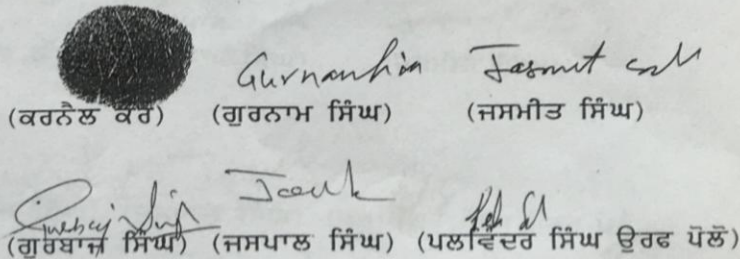 Gurnam Jasmit
(ਕਰਨੈਲ ਕੌਰ) (ਗੁਰਨਾਮ ਸਿੰਘ) (ਜਸਮੀਤ ਸਿੰਘ)
Gurbaj Singh
(ਗੁਰਬਾਜ ਸਿੰਘ) (ਜਸਪਾਲ ਸਿੰਘ) (ਪਲਵਿੰਦਰ ਸਿੰਘ ਉਰਫ ਪੋਲੋ)